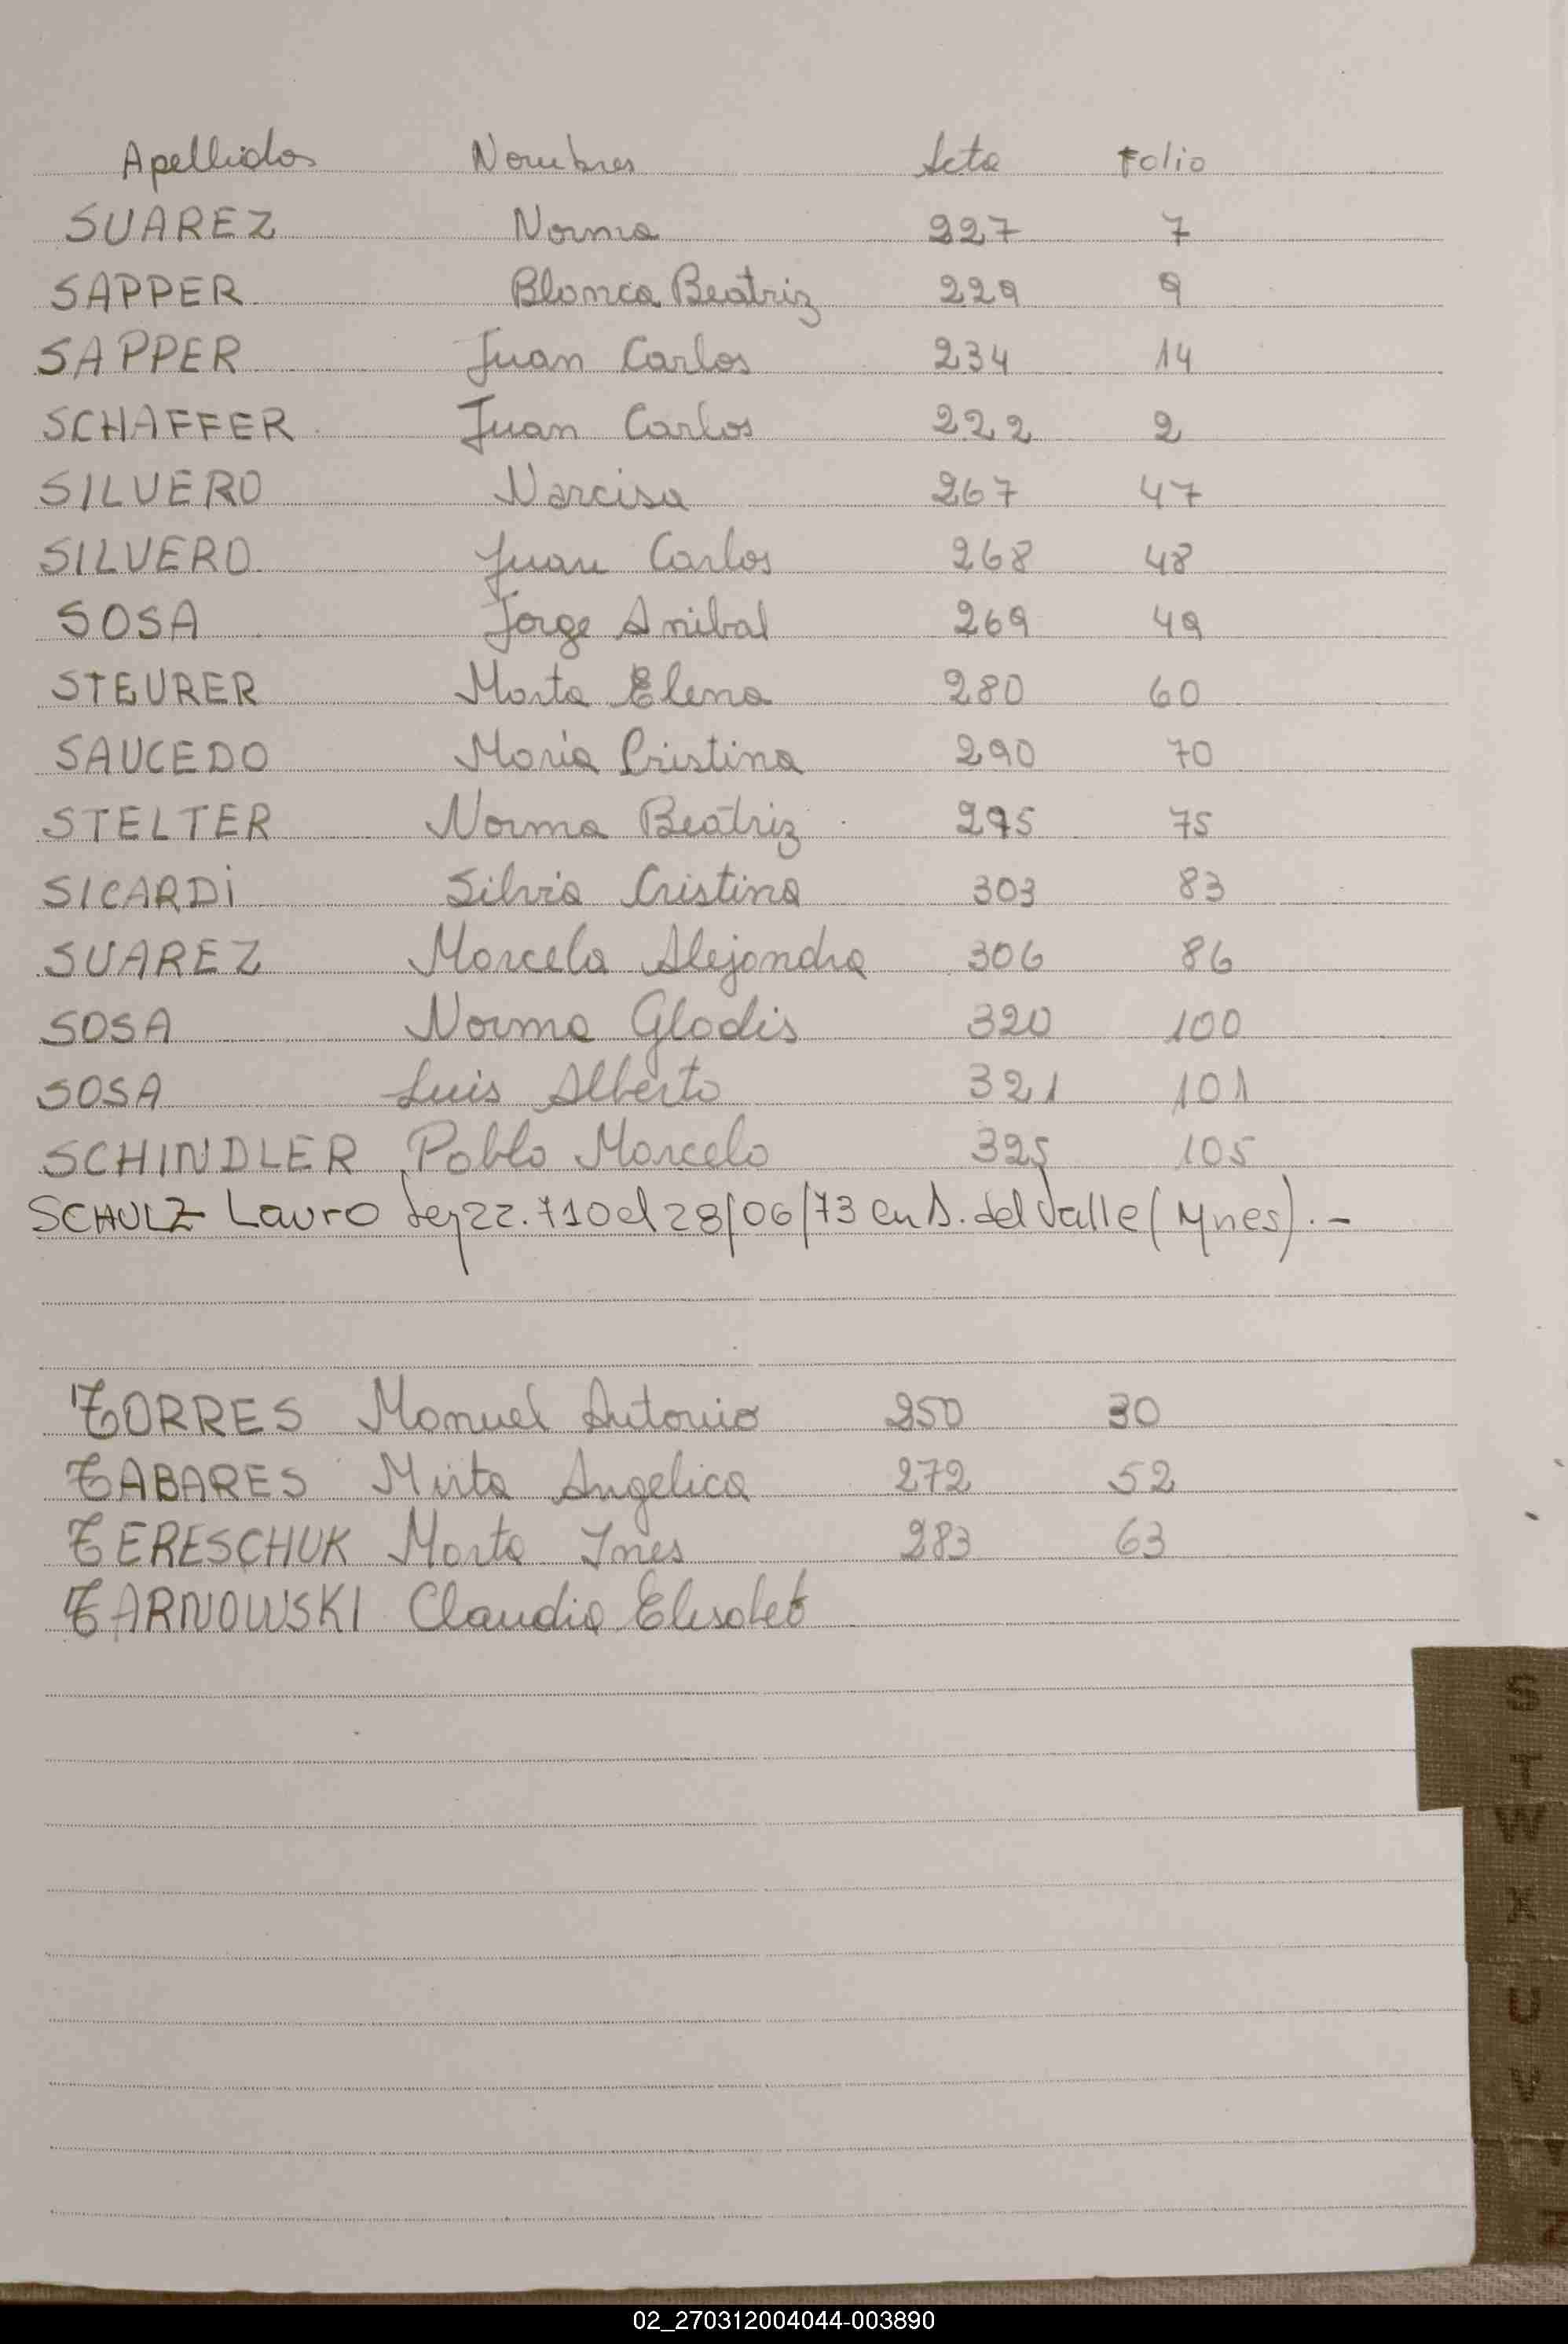 Apellidos Nombres Acta Folio
SUAREZ Norma 227 7
SAPPER Blanca Beatriz 229 9
SAPPER Juan Carlos 234 14
SCHAFFER Juan Carlos 222 2
SILVERO Narcisa 267 47
SILVERO Juan Carlos 268 48
SOSA Jorge Anibal 269 49
STEURER Marta Elena 280 60
SAUCEDO Maria Cristina 290 70
STELTER Norma Beatriz 295 75
SICARDi Silvia Cristina 303 83
SUAREZ Marcela Alejandra 306 86
SOSA Norma Gladis 320 100
SOSA Luis Alberto 321 101
SCHINDLER Pablo Marcelo 325 105
SCHULZ Lauro Ley 22.710 el 28/06/73 en A. del Valle (Mnes).-
TORRES Manuel Antonio 250 30
TABARES Mirta Angelica 272 52
TERESCHUK Marta Ines 283 63
TARNOWSKI Claudia Elisabet
S
T
W
X
U
V
Y
Z
02_270312004044-003890